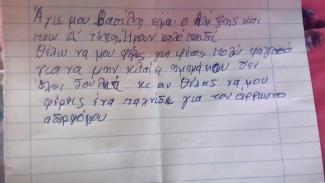 Άγιε μου Βασίλη είμαι ο Αλέξης και
παω Α' τάξη. Ήμουν καλό παιδί
Θέλω να μου φέρεις για φέτος πολύ φαγητό
για να μην κλαίει η μαμά μου δεν
έχει δουλειά κι αν θέλεις να μου
φέρεις ένα παιχνίδι για τον άρρωστο
αδερφό μου